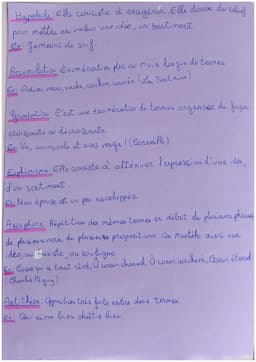 Hyperbole: Elle consiste à exagérer. Elle donne du relief
pour mettre en valeur une idée, un sentiment.
Ex: Je meurs de soif.
Accumulation: Énumération plus ou moins longue de termes.
Ex: Adieu, veau, vache, cochon, couvée (La Fontaine)
Gradation: C'est une énumération de termes organisée de façon
croissante ou décroissante.
Ex: Va, cours, vole et nous venge! (Corneille)
Euphémisme: Elle consiste à atténuer l'expression d'une idée,
d'un sentiment.
Ex: Mon épouse est un peu enveloppée.
Anaphore: Répétition des mêmes termes en début de plusieurs phrases,
de plusieurs vers, de plusieurs propositions. On martèle ainsi une
idée, on insiste, on souligne.
Ex: Coeur qui a tant rêvé, Ô coeur charnel, Ô coeur
(Charles Péguy)
Antithèse: Opposition très forte entre deux termes.
Ex: Qui aime bien châtie bien.